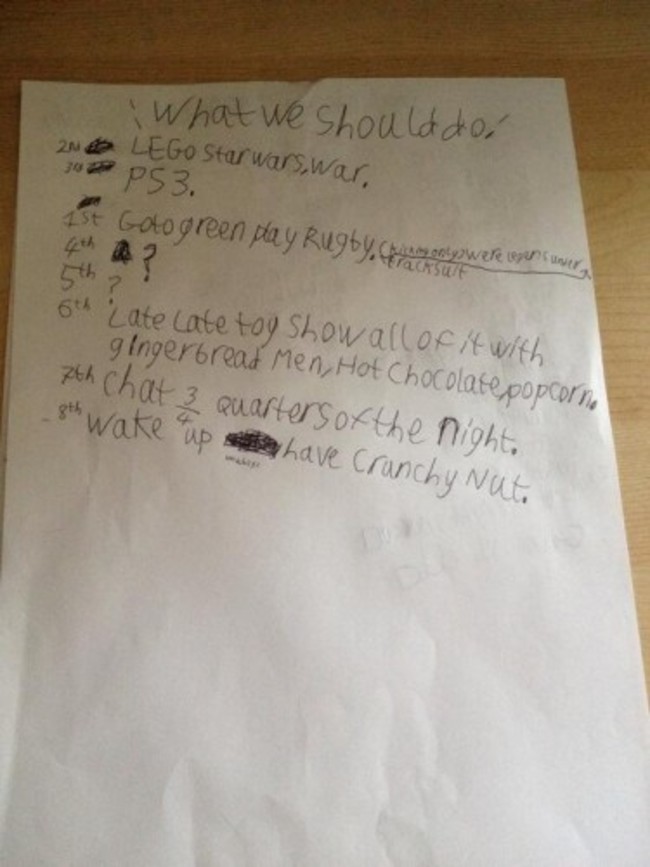 What we should do!
2nd LEGO Star wars, War.
3rd PS3.
1st Go to green play Rugby. (kicking only) were
tracksuit
4th ?
5th ?
6th Late Late toy Show all of it with
gingerbread Men, Hot Chocolate, popcorn.
7th Chat 3/4 quarters of the night.
8th Wake up have Crunchy Nut.